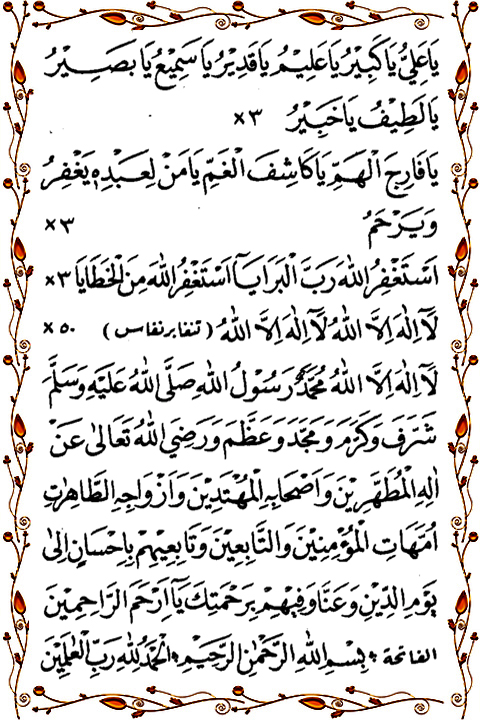 يَا عَلِيُّ يَا كَبِيْرُ يَا عَلِيْمُ يَا قَدِيْرُ يَا سَمِيْعُ يَا بَصِيْرُ
يَا لَطِيْفُ يَا خَبِيْرُ ×٣
يَا فَارِجَ الْهَمِّ يَا كَاشِفَ الْغَمِّ يَا مَنْ لِعَبْدِهِ يَغْفِرُ
وَيَرْحَمُ ×٣
اَسْتَغْفِرُ اللهَ رَبَّ الْبَرَايَا اَسْتَغْفِرُ اللهَ مِنَ الْخَطَايَا ×٣
لَآ اِلٰهَ اِلاَّ اللهُ لَآ اِلٰهَ اِلاَّ اللهُ (تنفا برنفاس) ×٥٠
لَآ اِلٰهَ اِلاَّ اللهُ مُحَمَّدٌ رَسُوْلُ اللهِ صَلَّى اللهُ عَلَيْهِ وَسَلَّمَ
شَرَّفَ وَكَرَّمَ وَمَجَّدَ وَعَظَّمَ وَرَضِيَ اللهُ تَعَالٰى عَنْ
اٰلِهِ الْمُطَهَّرِيْنَ وَاَصْحَابِهِ الْمُهْتَدِيْنَ وَاَزْوَاجِهِ الطَّاهِرَاتِ
اُمَّهَاتِ الْمُؤْمِنِيْنَ وَالتَّابِعِيْنَ وَتَابِعِيْهِمْ بِاِحْسَانٍ اِلٰى
يَوْمِ الدِّيْنِ وَعَنَّا وَفِيْهِمْ بِرَحْمَتِكَ يَآ اَرْحَمَ الرَّاحِمِيْنَ
الفاتحة * بِسْمِ اللهِ الرَّحْمٰنِ الرَّحِيْمِ * اَلْحَمْدُ لِلّٰهِ رَبِّ الْعٰلَمِيْنَ